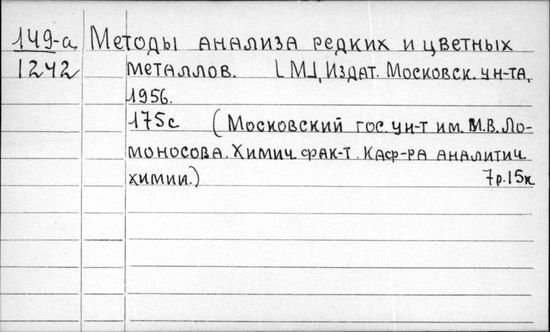 149-а Методы анализа редких и цветных
1242 металлов. [М], Издат. Московск. ун-та,
1956.
175с (Московский гос. ун-т им. М.В. Ло-
моносова. Химич. фак-т. Каф-ра аналитич.
химии.) 7р.15к